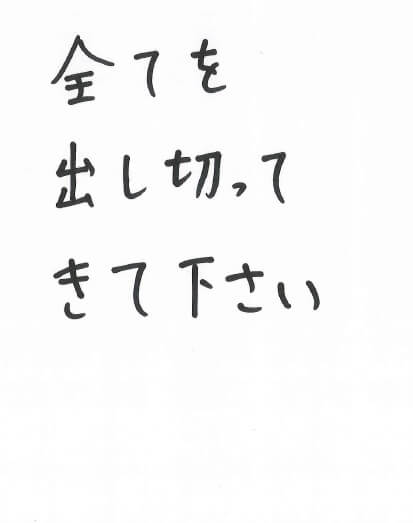 全てを
出し切って
きて下さい